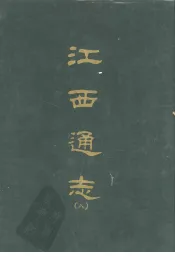 江西通志
(八)